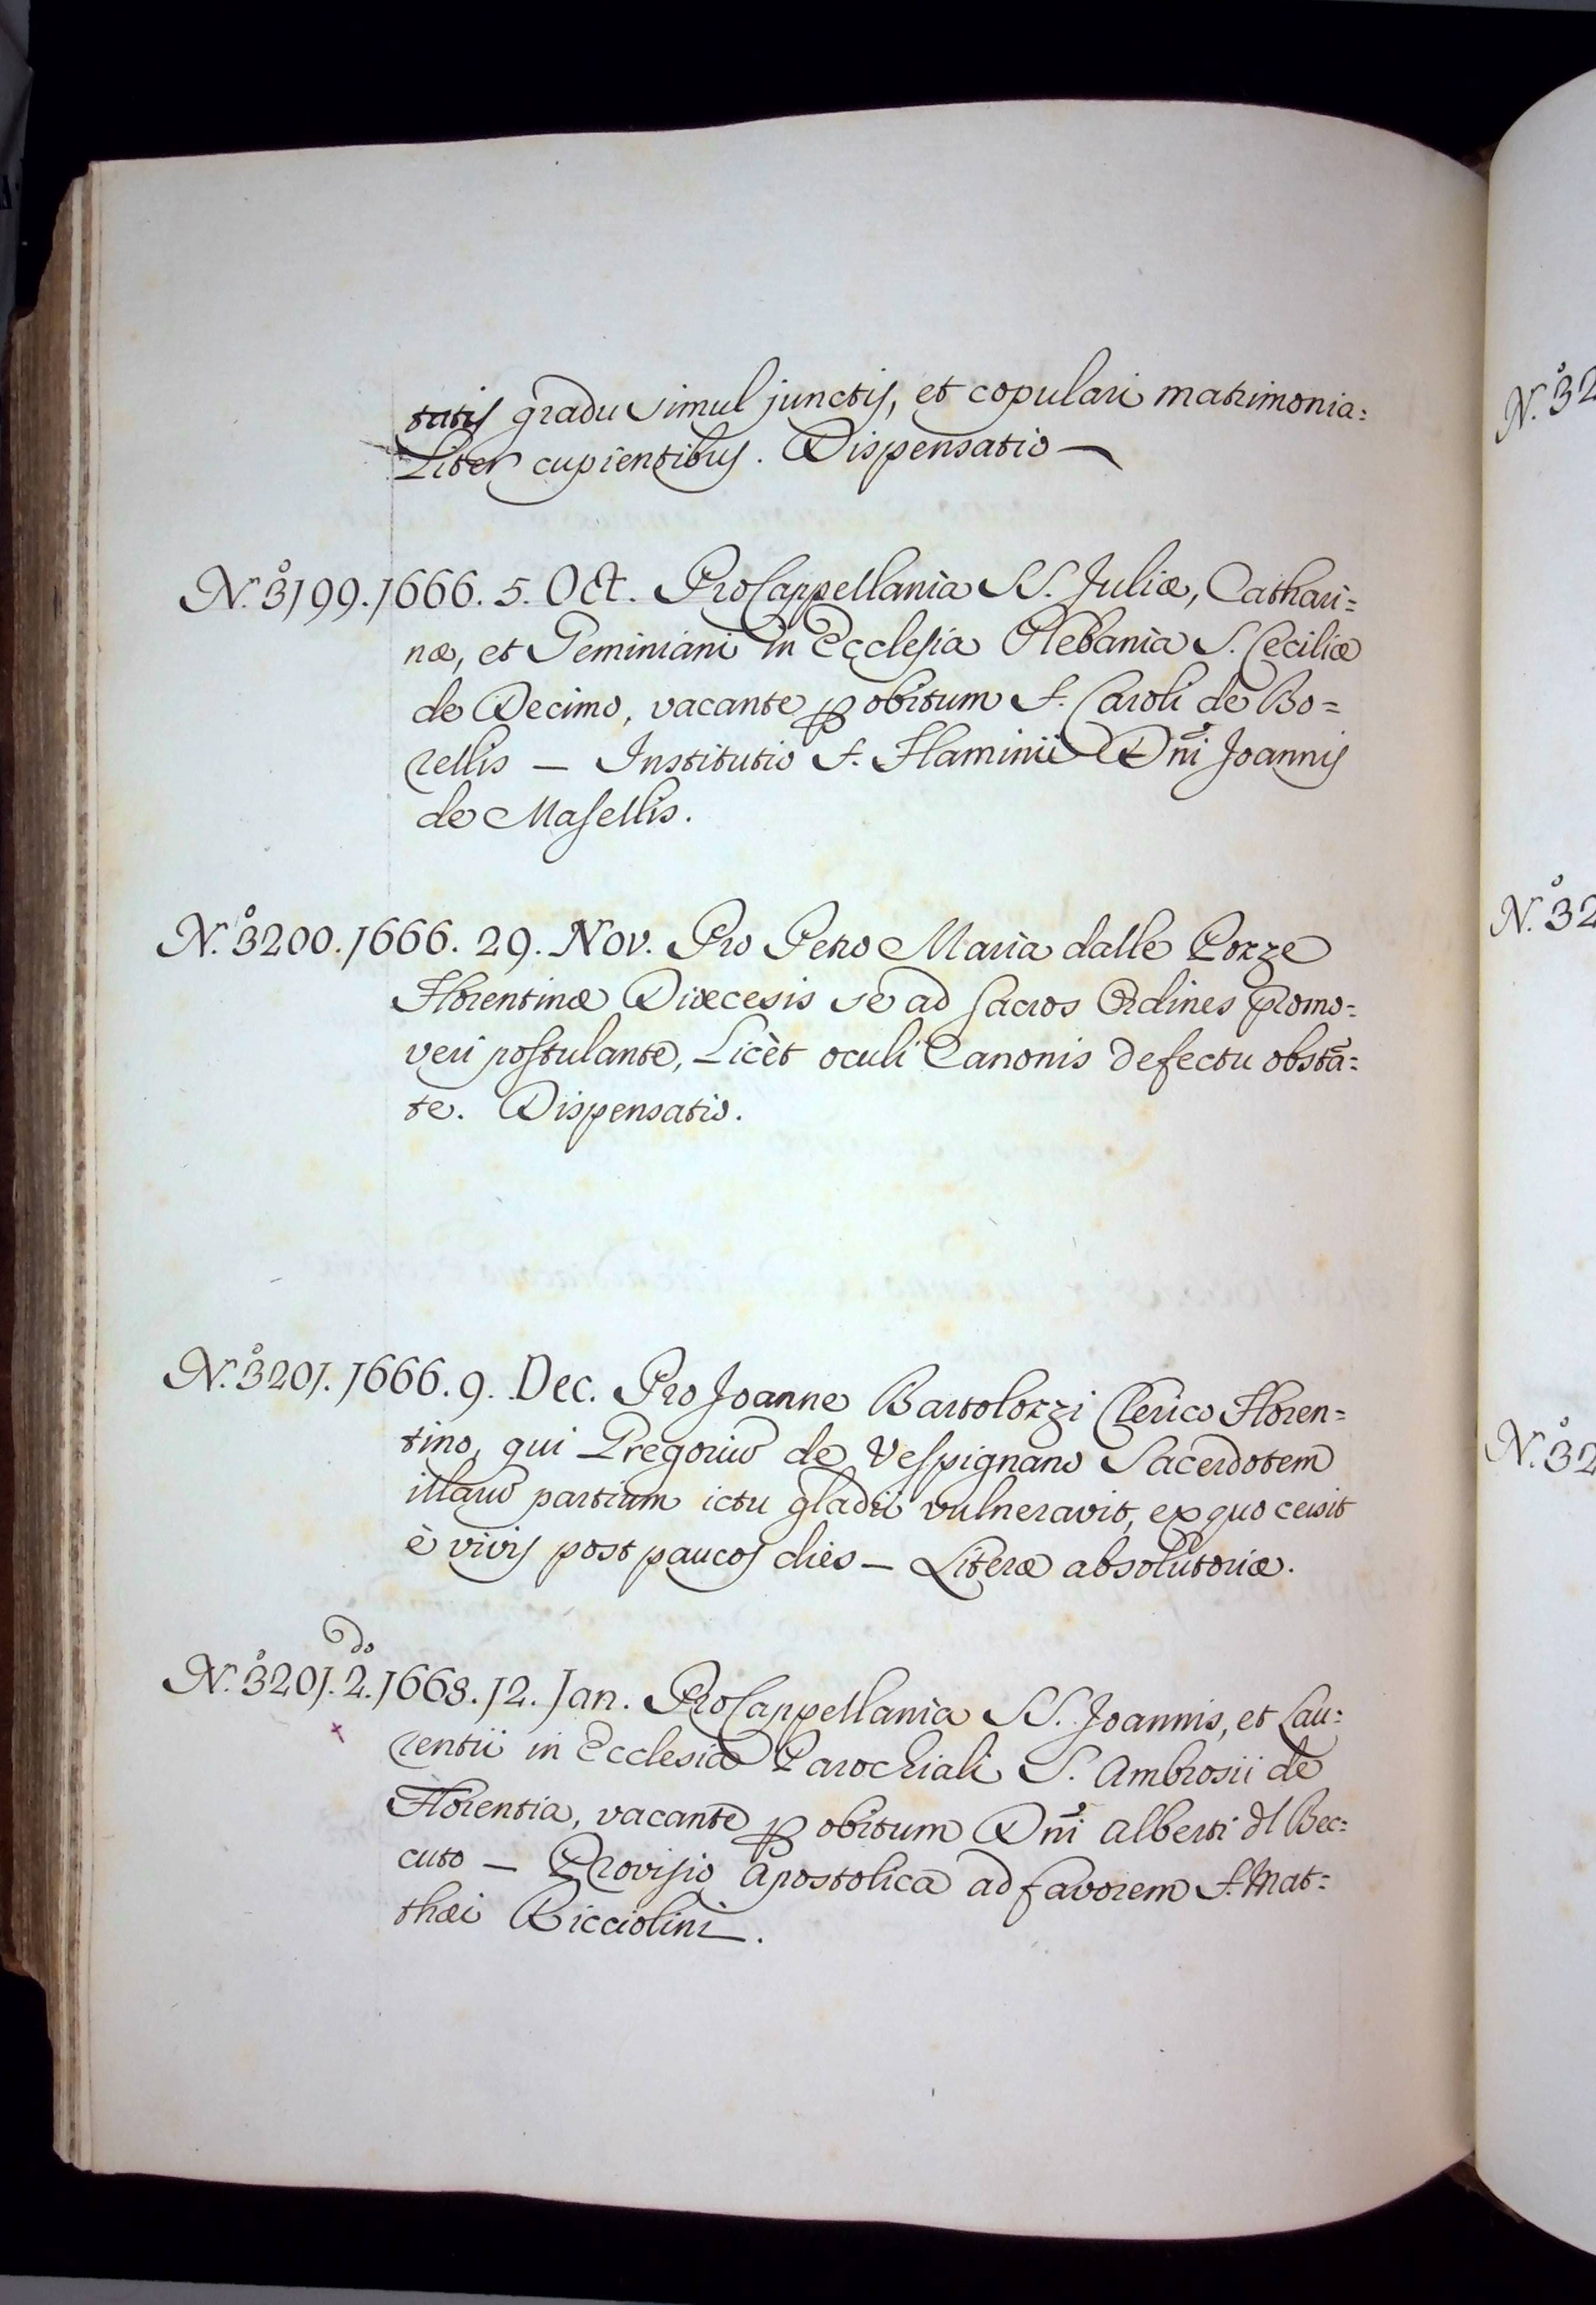 tatis gradu simul junctis, et copulari matrimonia=
Liter cupientibus. Dispensatio —
N.º 3199. 1666. 5. Oct. Pro Cappellania SS. Juliæ, Cathari=
næ, et Geminiani in Ecclesia Plebania S. Ceciliæ
de Decimo, vacante ꝑ obitum S. Caroli de Bo=
rellis — Institutio S. Flaminii Dñi Joannis
de Masellis.
N.º 3200. 1666. 29. Nov. Pro Petro Maria dalle Pozze
Florentinæ Diœcesis se ad sacros Ordines promo=
veri postulante, Licèt oculi Canonis defectu obstā=
te. Dispensatio.
N.º 3201. 1666. 9. Dec. Pro Joanne Bartolozzi Clerico Floren=
tino, qui Gregoriū de Vespignano Sacerdotem
illarū partium ictu gladii vulneravit, ex quo cessit
è vivis post paucos dies — Literæ absolutoriæ.
N.º 3201. 2.do 1668. 12. Jan. Pro Cappellania SS. Joannis, et Lau=
rentii in Ecclesia Parochiali S. Ambrosii de
Florentia, vacante ꝑ obitum Dñi Alberti dl Bec=
cuto — Provisio Apostolica ad favorem S. Mat=
thæi Ricciolini.
N.º 32
N.º 32
N.º 32